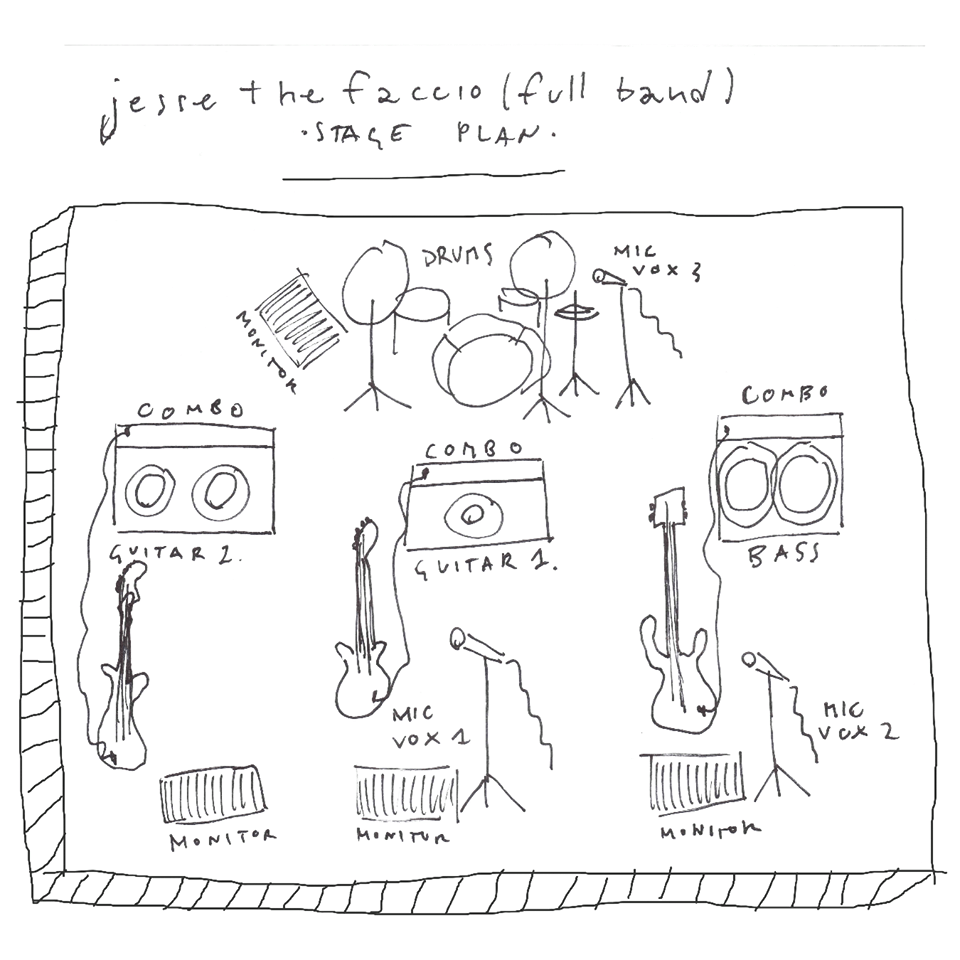 jesse the faccio (full band)
·STAGE PLAN·
DRUMS
MIC
VOX 3
MONITOR
COMBO
GUITAR 2.
COMBO
GUITAR 1.
COMBO
BASS
MIC
VOX 1
MIC
VOX 2
MONITOR
MONITOR
MONITOR